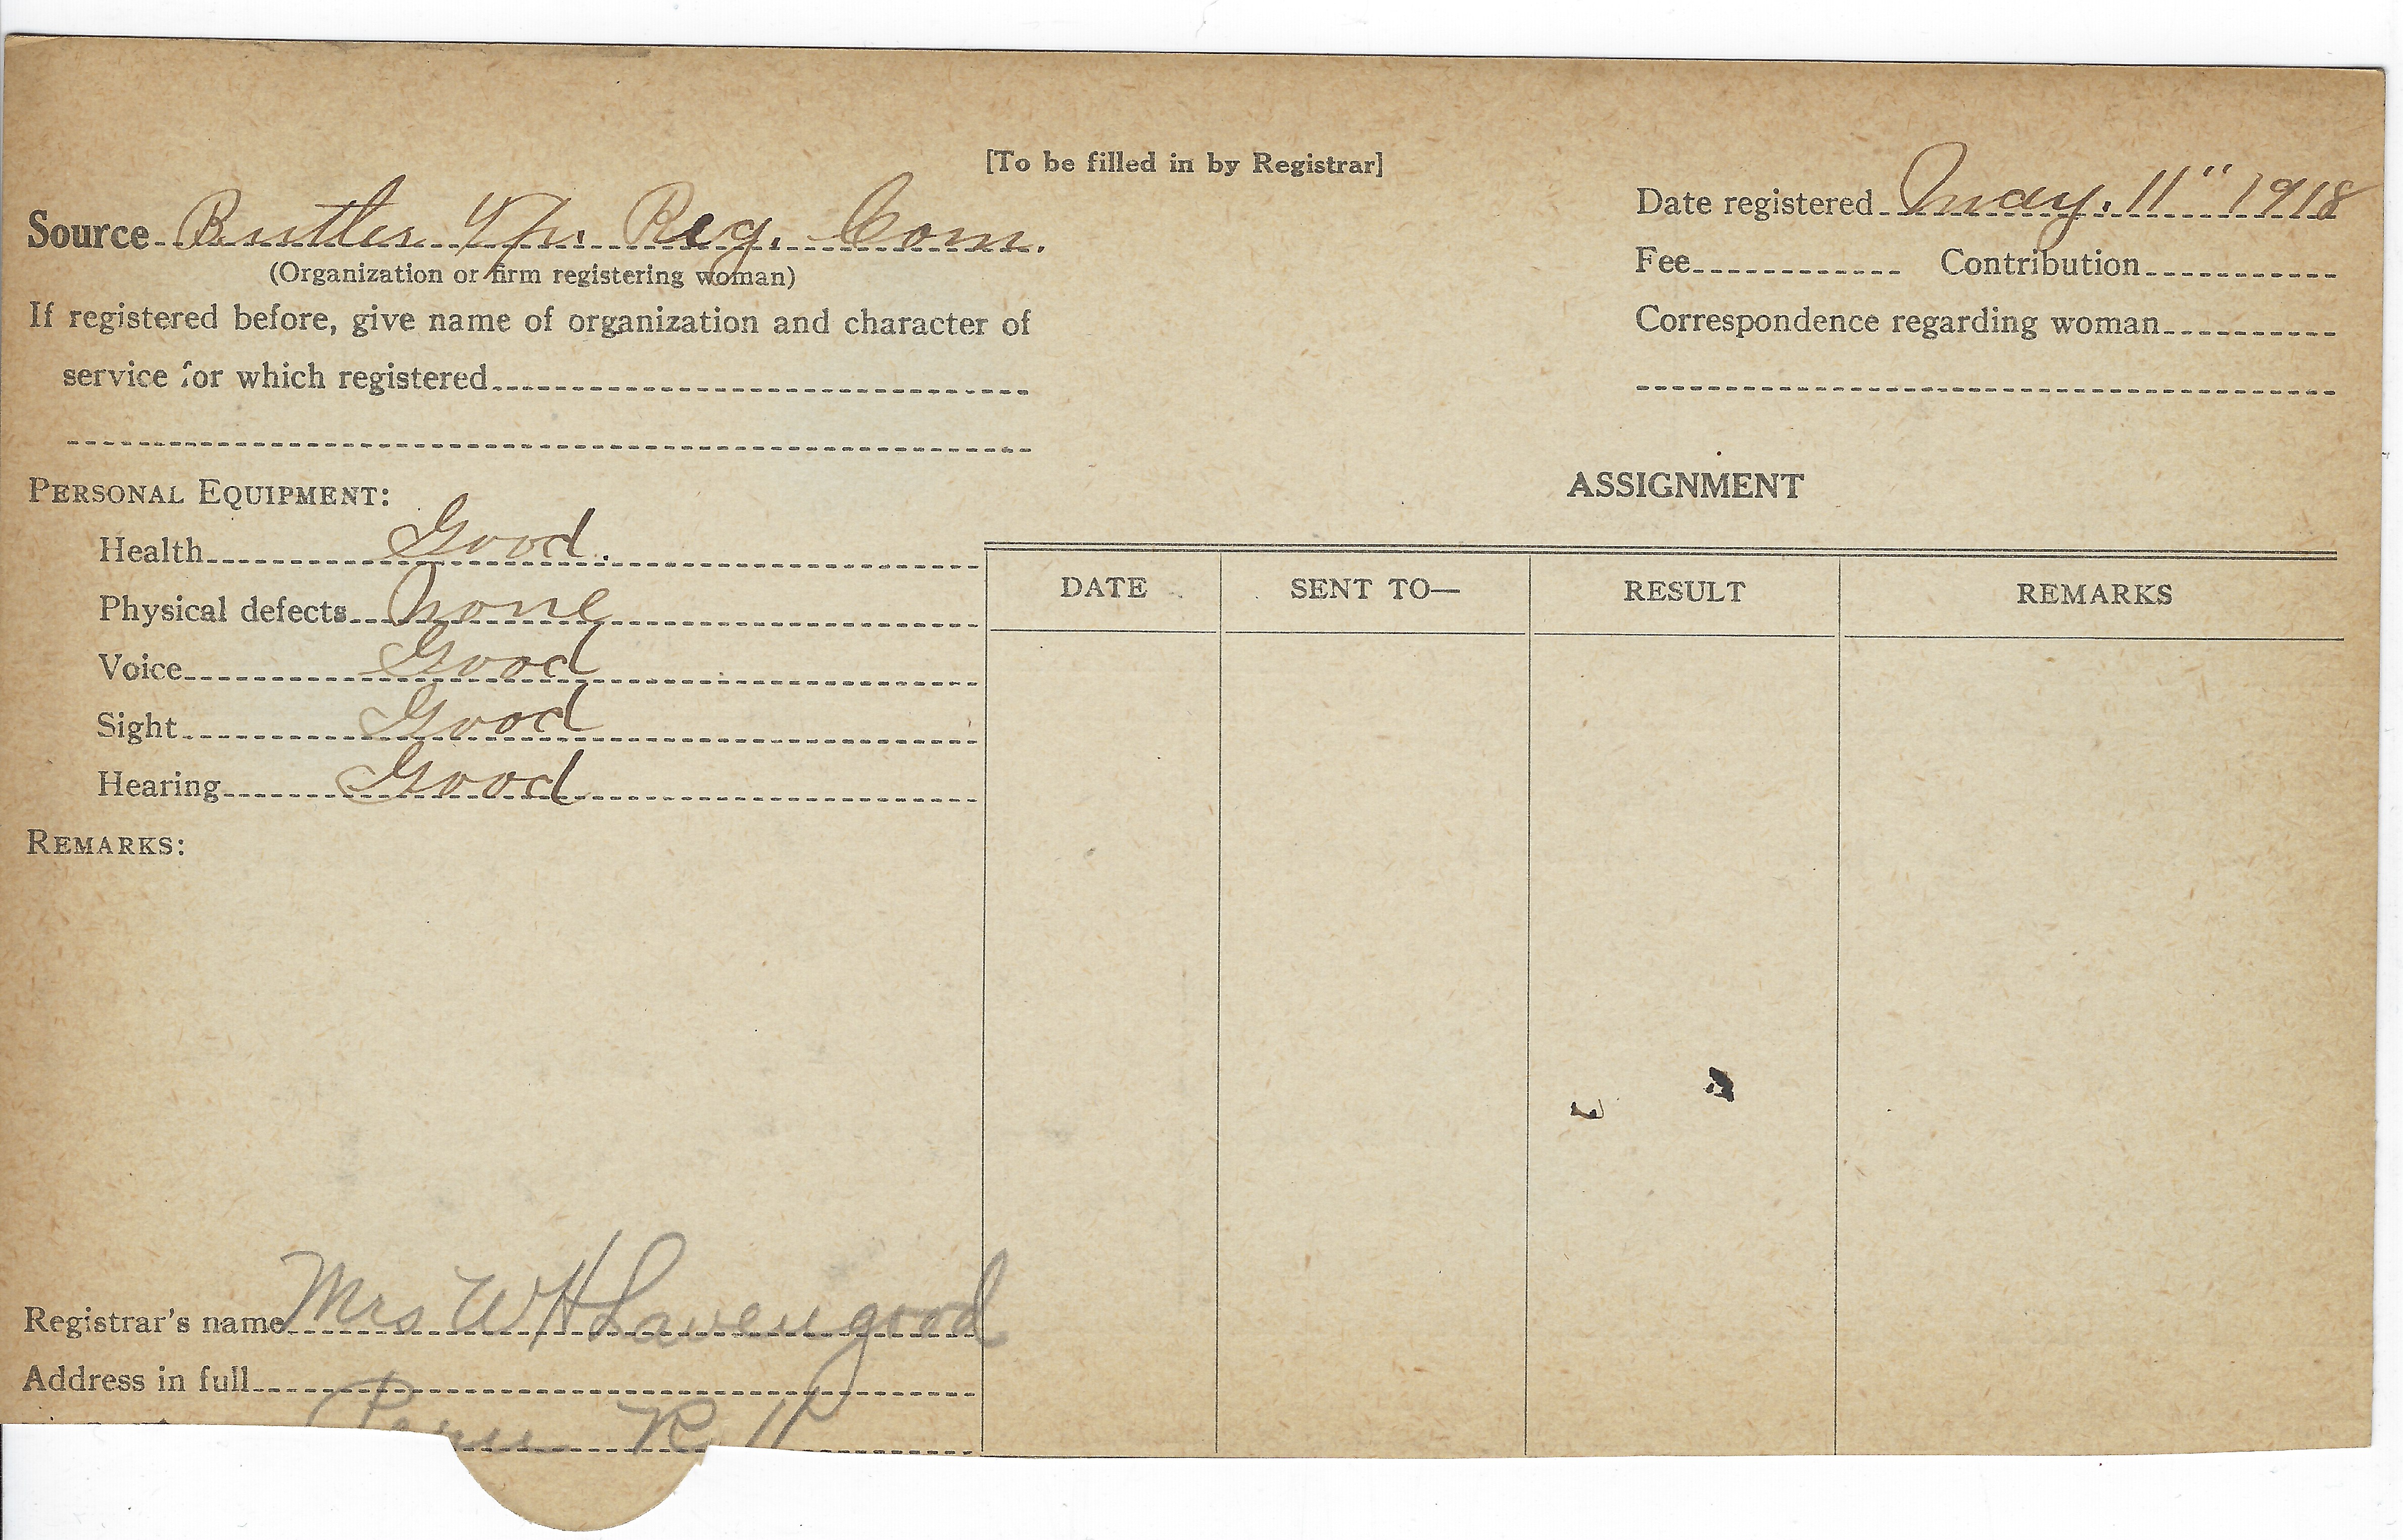 [To be filled in by Registrar]
Source Butler Tp. Reg. Com.
(Organization or firm registering woman)
If registered before, give name of organization and character of
service for which registered
Date registered May. 11" 1918
Fee Contribution
Correspondence regarding woman
PERSONAL EQUIPMENT:
Health Good.
Physical defects None
Voice Good
Sight Good
Hearing Good
REMARKS:
ASSIGNMENT
DATE SENT TO— RESULT REMARKS
Registrar's name Mrs W H Lavengood
Address in full
Peru R 11